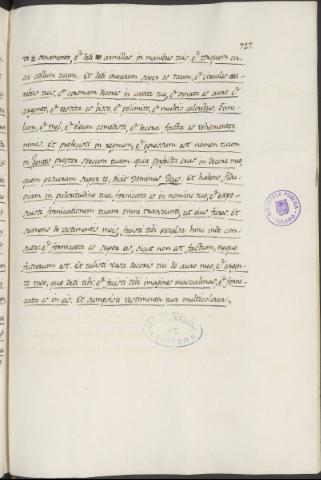 727.
vi te ornamento, & dedi armillas in manibus tuis, & torquem cir-
ca collum tuum. Et dedi inaurem super os tuum, & circulos au-
ribus tuis, & coronam decoris in capite tuo, & ornata es auro &
argento, & vestita es bisso, & polimito, & multis coloribus. Simi-
lam, & mel, & oleum comedisti, & decora facta es vehementer
nimis. Et profecisti in regnum, & egressum est nomen tuum
in gentes propter speciem tuam quia perfecta eras in decore meo,
quem posueram super te, dicit Dominus Deus. Et habens fidu-
ciam in pulcritudine tua, fornicata es in nomine tuo, & expo-
suisti fornicationem tuam omni transeunti, ut eius fieres. Et
sumens de vestimentis meis, fecisti tibi excelsa hinc inde con-
suta: & fornicata es super eis, sicut non est factum, neque
futurum est. Et tulisti vasa decoris tui de auro meo, & argen-
to meo, quæ dedi tibi: & fecisti tibi imagines masculinas, & forni-
cata es in eis. Et sumpsisti vestimenta tua multicoloria,
BIBLIOTECA PUBLICA
TOLEDO
DE
TOLEDO